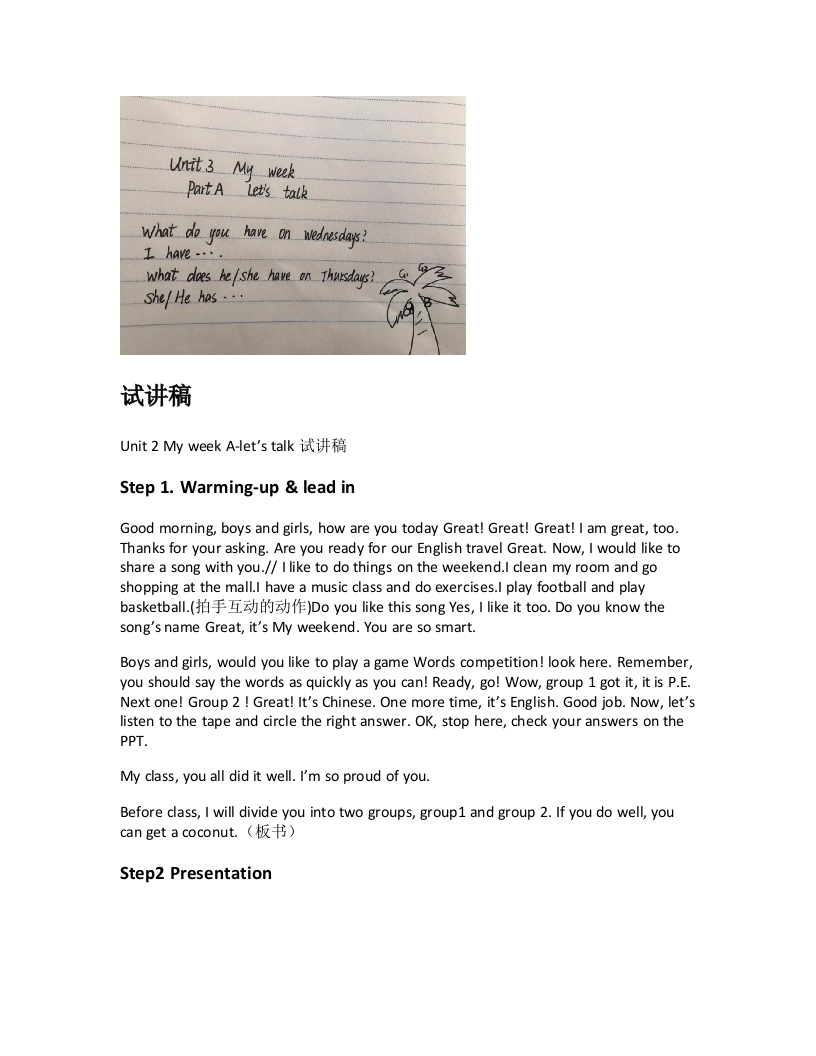 Unit 3 My week
Part A Let's talk
What do you have on Wednesdays?
I have ··· .
What does he/she have on Thursdays?
She/He has ···
G1 G2
试讲稿
Unit 2 My week A-let’s talk 试讲稿
Step 1. Warming-up & lead in
Good morning, boys and girls, how are you today Great! Great! Great! I am great, too.
Thanks for your asking. Are you ready for our English travel Great. Now, I would like to
share a song with you.// I like to do things on the weekend.I clean my room and go
shopping at the mall.I have a music class and do exercises.I play football and play
basketball.(拍手互动的动作)Do you like this song Yes, I like it too. Do you know the
song’s name Great, it’s My weekend. You are so smart.
Boys and girls, would you like to play a game Words competition! look here. Remember,
you should say the words as quickly as you can! Ready, go! Wow, group 1 got it, it is P.E.
Next one! Group 2 ! Great! It’s Chinese. One more time, it’s English. Good job. Now, let’s
listen to the tape and circle the right answer. OK, stop here, check your answers on the
PPT.
My class, you all did it well. I’m so proud of you.
Before class, I will divide you into two groups, group1 and group 2. If you do well, you
can get a coconut.（板书）
Step2 Presentation